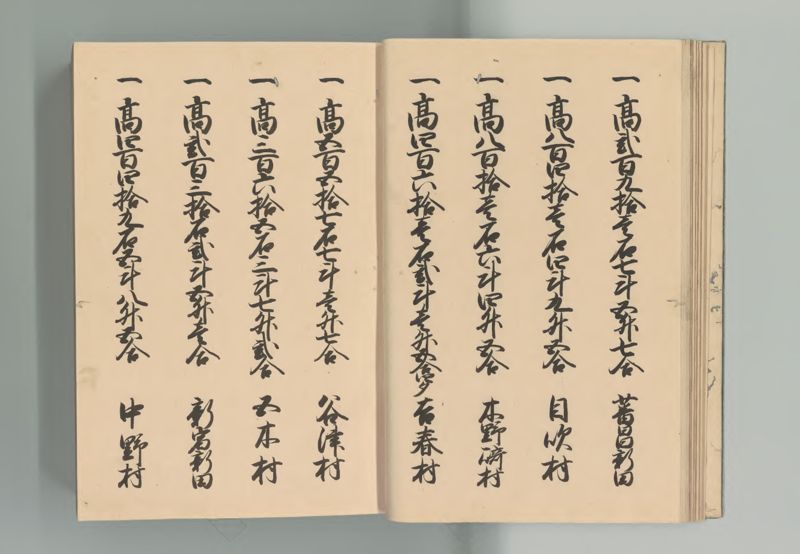 一高弐百九拾壱石七斗五升七合 蕃昌新田
一高八百四拾壱石四斗九升五合 目吹村
一高八百拾壱石六斗四升五合 木野崎村
一高四百六拾壱石弐斗壱升五合 吉春村
一高五百五拾七石七斗壱升七合 谷津村
一高三百六拾五石三斗七升弐合 五木村
一高弐百三拾石弐斗五升壱合 新宿新田
一高四百四拾九石五斗八升五合 中野村